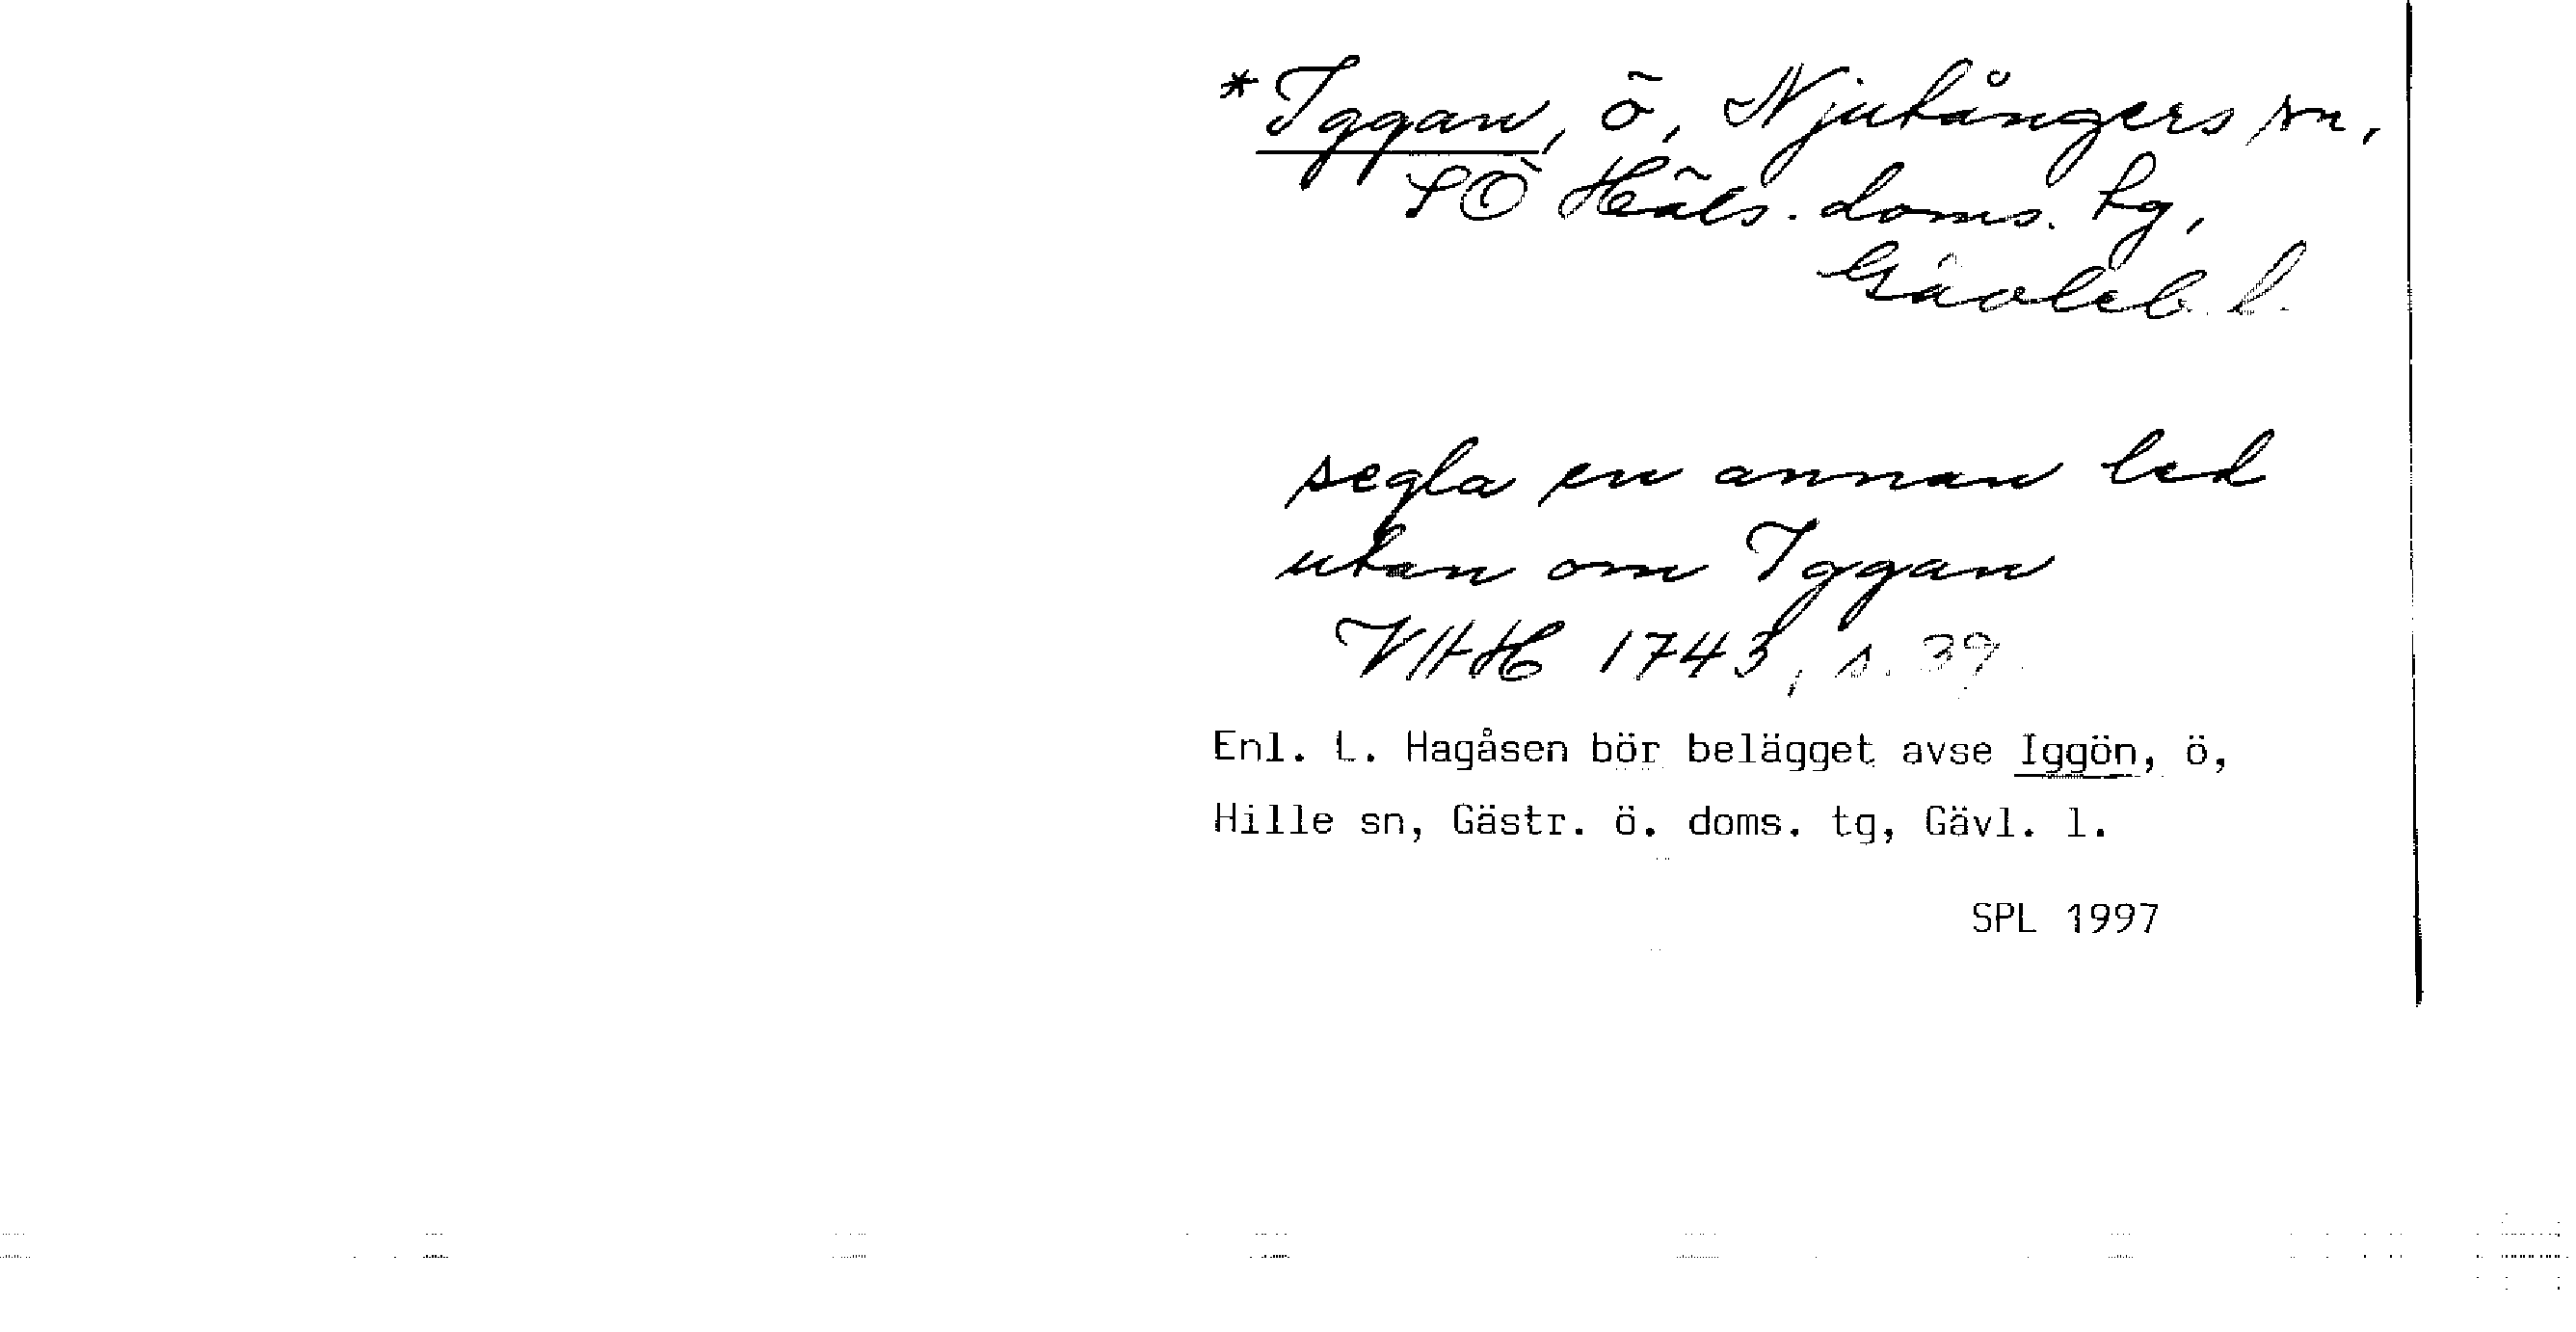 *Iggan, ö, Njutångers sn,
SÖ Häls. doms. tg,
Gävleb. l.
segla en annan led
utan om Iggan
VHH 1743, s. 39.
Enl. L. Hagåsen bör belägget avse Iggön, ö,
Hille sn, Gästr. ö. doms. tg, Gävl. l.
SPL 1997